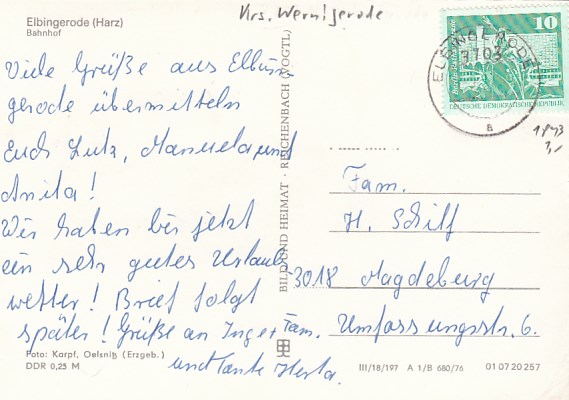 Elbingerode (Harz)
Bahnhof
Krs. Wernigerode
10
DEUTSCHE DEMOKRATISCHE REPUBLIK
ELBINGERODE
3703
a
Viele Grüße aus Elbin
gerode übermitteln
Euch Lutz, Manuela und
Anita!
Wir haben bis jetzt
ein sehr gutes Urlaubs-
wetter! Brief folgt
später! Grüße an Inge + Fam.
und Tante Herta.
BILD UND HEIMAT · REICHENBACH (VOGTL)
Fam.
H. Schilf
3018 Magdeburg
Umfassungsstr. 6.
Foto: Karpf, Oelsnitz (Erzgeb.)
DDR 0,25 M
III/18/197 A 1/B 680/76 01 07 20 257